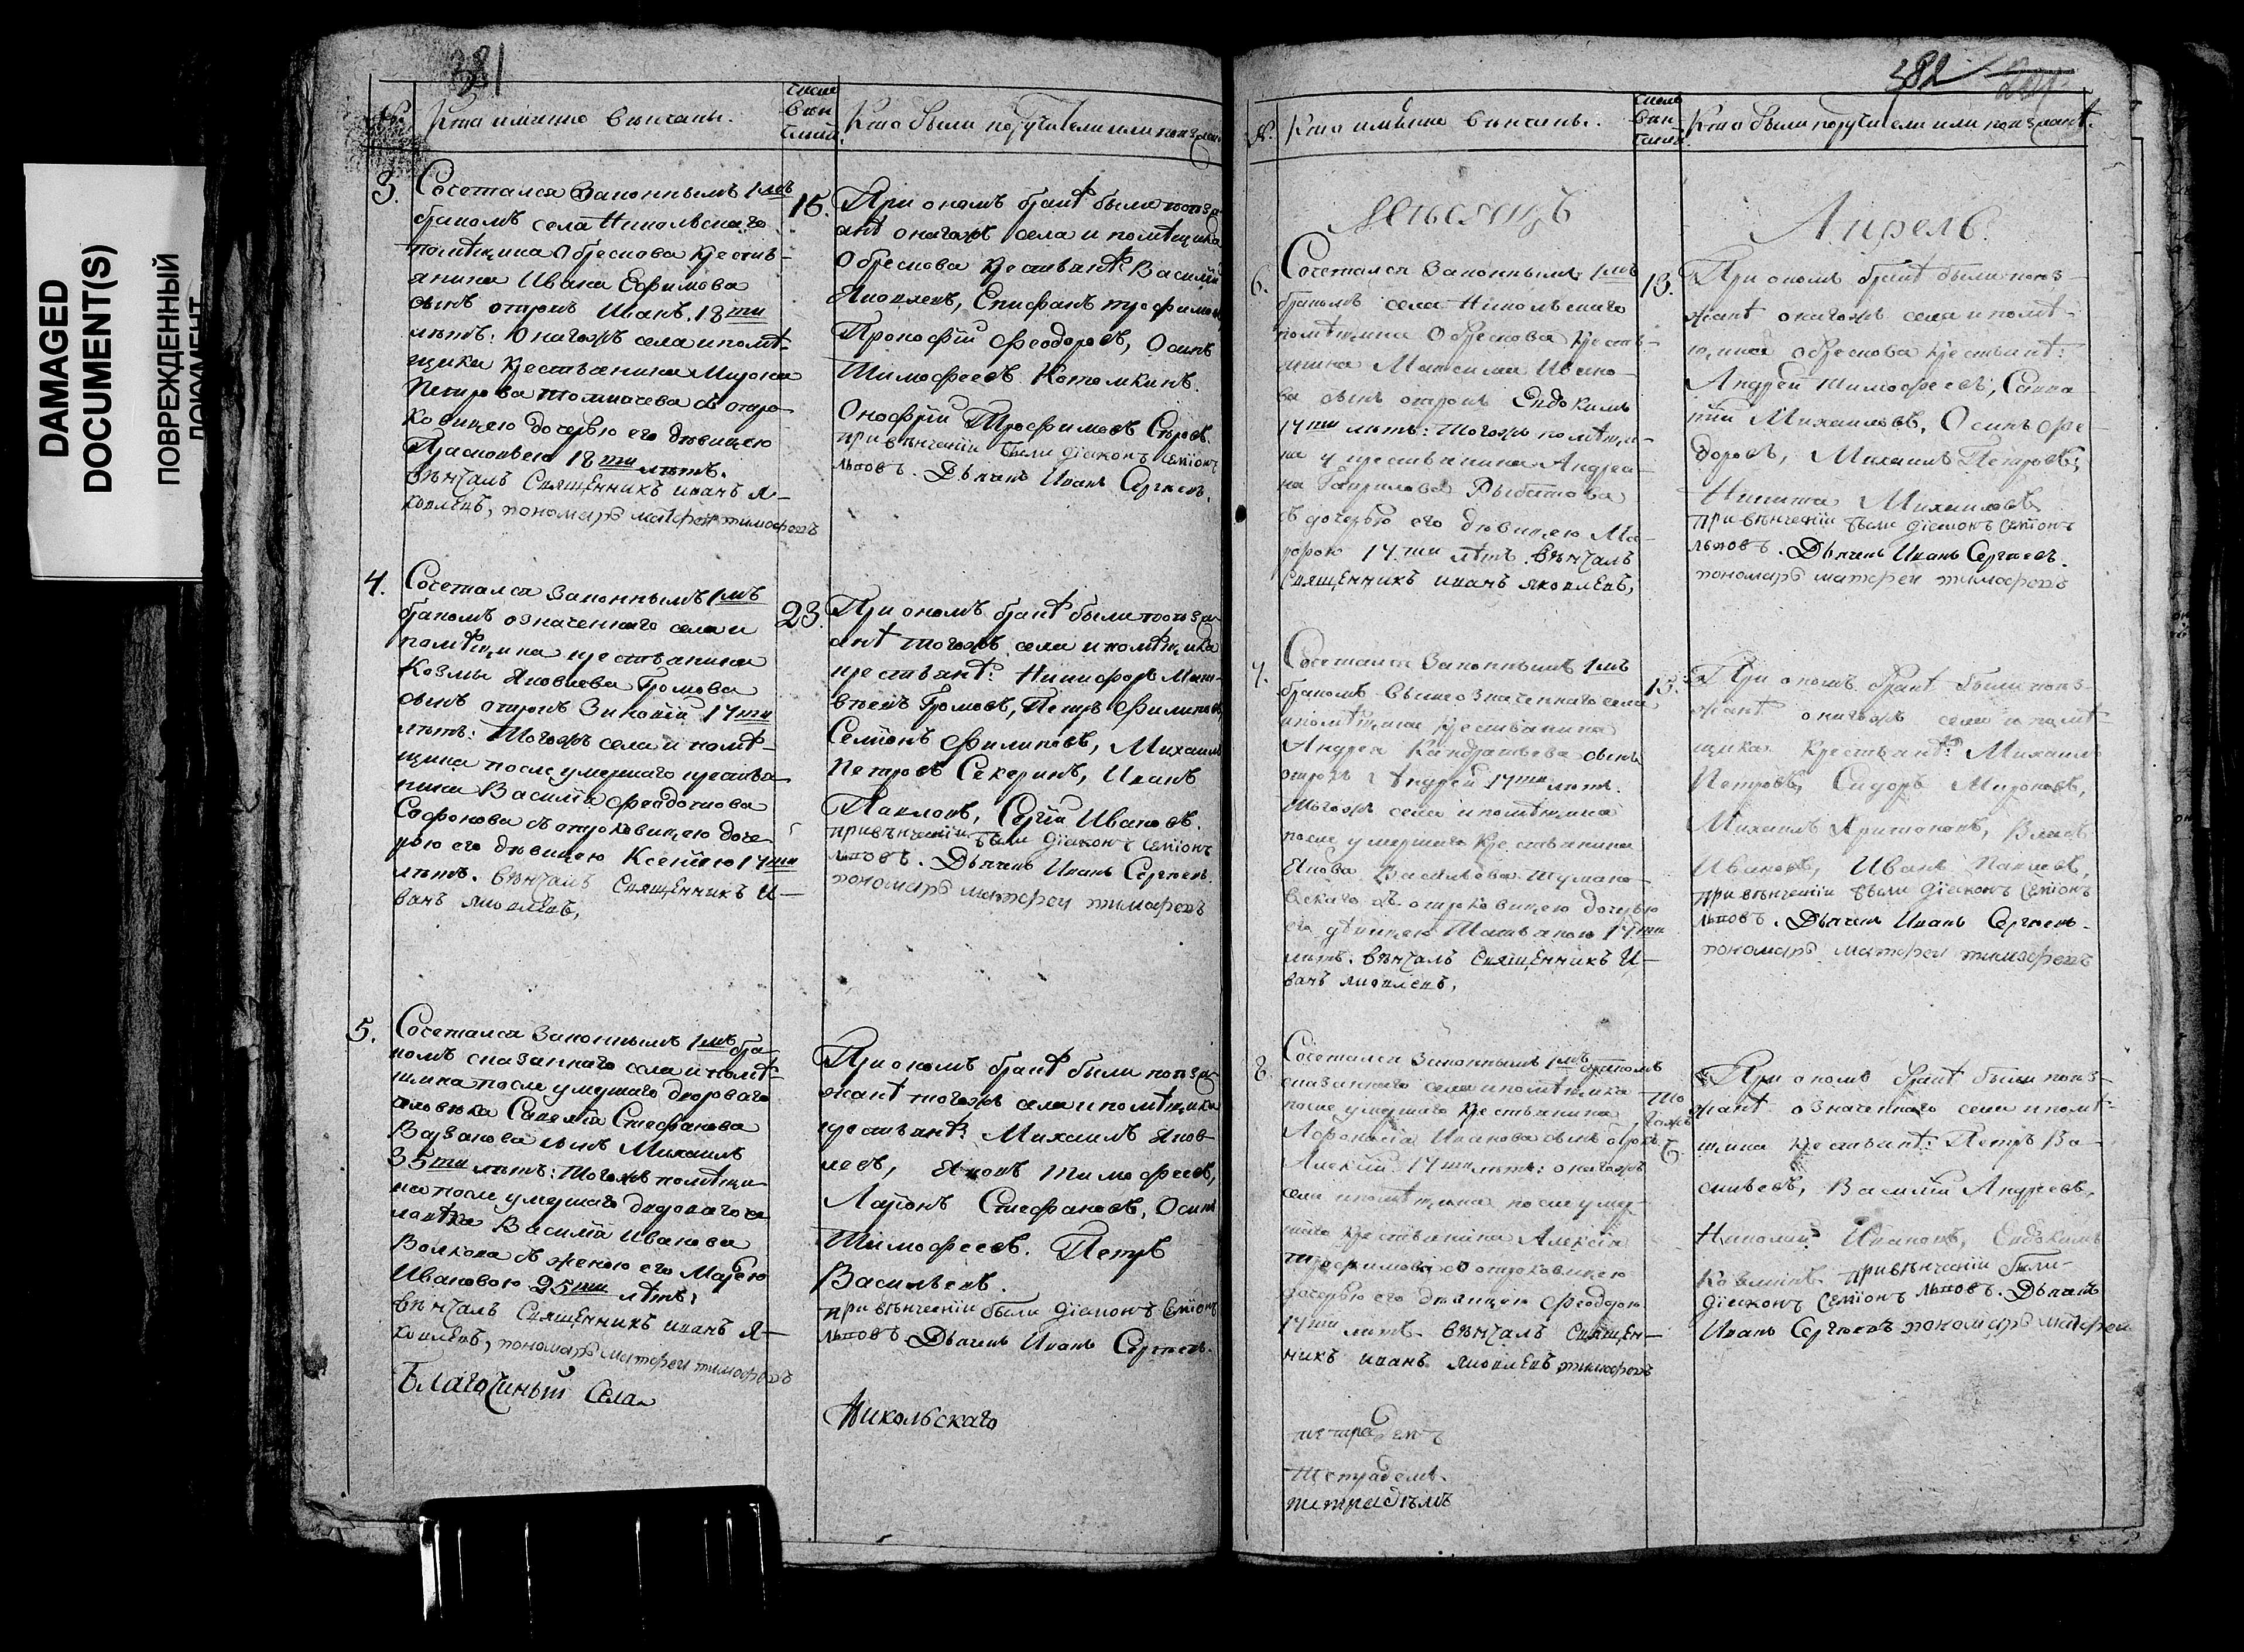 DAMAGED
DOCUMENT(S)
ПОВРЕЖДЕННЫЙ
ДОКУМЕНТ
381
№
Кто имянно венчаны.
Кто были поручители или поезжан
3.
Сочетался законнымъ 1мъ
бракомъ села Никольскаго
помѣщика Обрескова кресть-
янина Ивана Ефимова
сынъ отрокъ Иванъ 18ти
лѣтъ: Онагожъ села и помѣ-
щика крестьянина Мирона
Петрова Толмачева съ отро-
ковицею дочерью его дѣвицею
Прасковьею 18ти лѣтъ.
вѣнчалъ Священникъ иванъ я-
ковлевъ, пономарь матфей тимофеевъ
15.
При ономъ бракѣ были поезж
анѣ онагожъ села и помѣщика
Обрескова крестьянѣ Василий
Яковлевъ, Епифанъ трофимовъ
Прокофій Феодоровъ, Осипъ
Тимофеевъ Котомкинъ.
Онофрій Трофимовъ
при вѣнчении были діаконъ семіонъ
львовъ. Дьячекъ Иванъ Сергѣевъ.
4.
Сочетался законнымъ 1мъ
бракомъ означеннаго села и
помѣщика крестьянина
Козмы Яковлева Громова
сынъ отрокъ Зиновій 17ти
лѣтъ: Тогожъ села и помѣ-
щика после умершаго крестья-
нина Василія Феодотова
Софонова съ отроковицею доче-
рью его дѣвицею Ксениею 17ти
лѣтъ. вѣнчалъ Священникъ и-
ванъ яковлевъ,
23.
При ономъ бракѣ были поезж
анѣ тогожъ села и помѣщика
крестьянѣ: Никифоръ Мат-
вѣевъ Громовъ, Петръ Филиповъ
Семіонъ Филиповъ, Михаилъ
Петровъ Секеринъ, Иванъ
Павловъ, Сергій Ивановъ.
при вѣнчении были діаконъ семіонъ
львовъ. Дьячекъ Иванъ Сергѣевъ.
пономарь матфей тимофеевъ
5.
Сочетался законнымъ 1мъ бра-
комъ сказаннаго села и помѣ-
щика после умершаго двороваго
человѣка Савелія Стефанова
сынъ Михаилъ
35ти лѣтъ: Тогожъ помѣщи-
ка после умершаго двороваго че
ловѣка Василія Иванова
Волкова съ женою его Марьею
Ивановою 25ти лѣтъ:
вѣнчалъ Священникъ иванъ я-
ковлевъ, пономарь матфей тимофеевъ
При ономъ бракѣ были поезж
жанѣ тогожъ села и помѣщика
крестьянѣ: Михаилъ Яков-
левъ, Яковъ Тимофеевъ,
Ларіонъ Стефановъ, Осипъ
Тимофеевъ. Петръ
Васильевъ.
при вѣнчении были діаконъ семіонъ
львовъ. Дьячекъ Иванъ Сергѣевъ.
Благочиный Села
Никольскаго
382
№.
Кто имянно венчаны.
Кто были поручители или поезжанѣ.
Мѣсяцъ
Апрель.
6.
Сочетался законнымъ 1мъ
бракомъ села Никольскаго
помѣщика Обрескова кресть-
янина Максима Ивано-
ва сынъ отрокъ Евдокимъ
17ти лѣтъ: Тогожъ помѣщи-
ка у крестьянина Андрея-
на Гаврилова
съ дочерью его дѣвицею Ма-
рфою 17ти лѣтъ. вѣнчалъ
Священникъ иванъ яковлевъ,
13.
При ономъ бракѣ были поез-
жанѣ онагожъ села и помѣ-
щика Обрескова крестьянѣ:
Андрей Тимофеевъ,
Михаиловъ, Осипъ Фе-
доровъ, Михаилъ Петровъ,
Никита Михаиловъ.
при вѣнчении были діаконъ семіонъ
львовъ. Дьячекъ Иванъ Сергѣевъ.
пономарь матфей тимофеевъ
7.
Сочетался законнымъ 1мъ
бракомъ вышеозначеннаго села
и помѣщика крестьянина
Андрея Кандратьева сынъ
отрокъ Андрей 17ти лѣтъ.
Тогожъ села и помѣщика
после умершаго крестьянина
Якова Васильева Тумано-
вскаго съ отроковицею дочерью
его дѣвицею Татьяною 17ти
лѣтъ. вѣнчалъ Священникъ и-
ванъ яковлевъ,
13.
При ономъ бракѣ были поез-
жанѣ онагожъ села и помѣ
щика крестьянѣ: Михаилъ
Петровъ, Сидоръ Мироновъ,
Михаилъ Аримоновъ, Власъ
Ивановъ, Иванъ Павловъ,
при вѣнчении были діаконъ семіонъ
львовъ. Дьячекъ Иванъ Сергѣевъ.
пономарь матфей тимофеевъ
8.
Сочетался законнымъ 1мъ бракомъ
сказаннаго села и помѣщика
после умершаго крестьянина
Афонасія Иванова сынъ отрокъ
Алексій 17ти лѣтъ: онагожъ
села и помѣщика после умер-
шаго крестьянина Алексія
Трофимова съ отроковицею
дочерью его дѣвицею Феодорою
17ти лѣтъ. вѣнчалъ Священ-
никъ иванъ яковлевъ тимофеевъ
То
гожъ
При ономъ бракѣ были поез-
жанѣ означеннаго села и помѣ-
щика крестьянѣ: Петръ Ва-
сильевъ, Василій Андреевъ,
Николай Ивановъ, Евдокимъ
Козминъ. при вѣнчении были
діаконъ семіонъ львовъ. Дьячекъ
Иванъ Сергѣевъ пономарь матфей